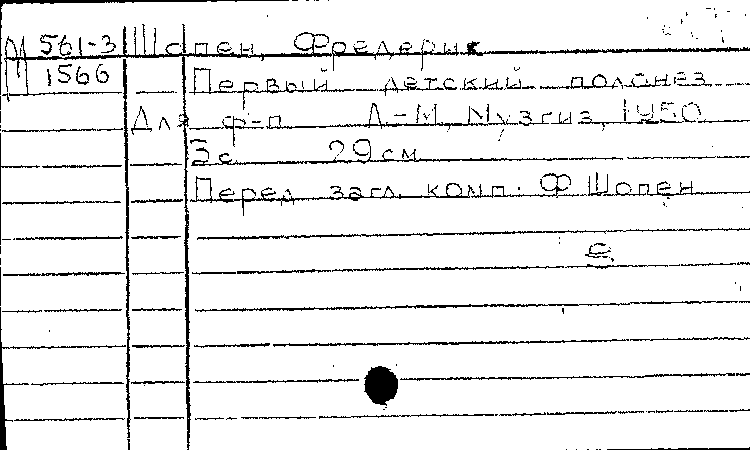 М 561-3 Шопен, Фредерик
1566 Первый детский полонез
Для ф-п Л-М, Музгиз, 1950
3с 29 см
Перед загл. комп. Ф Шопен